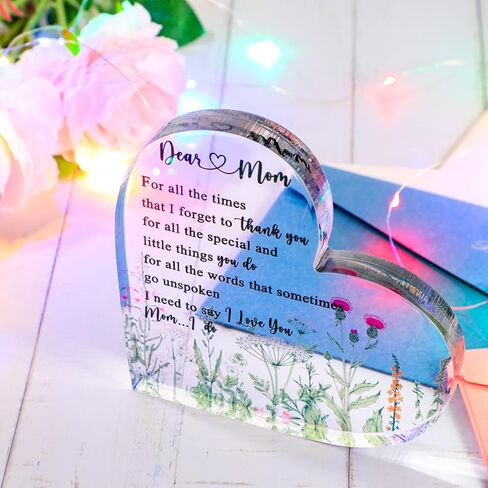 Dear Mom
For all the times
that I forget to thank you
for all the special and
little things you do
for all the words that sometimes
go unspoken
I need to say I Love You
Mom...I do